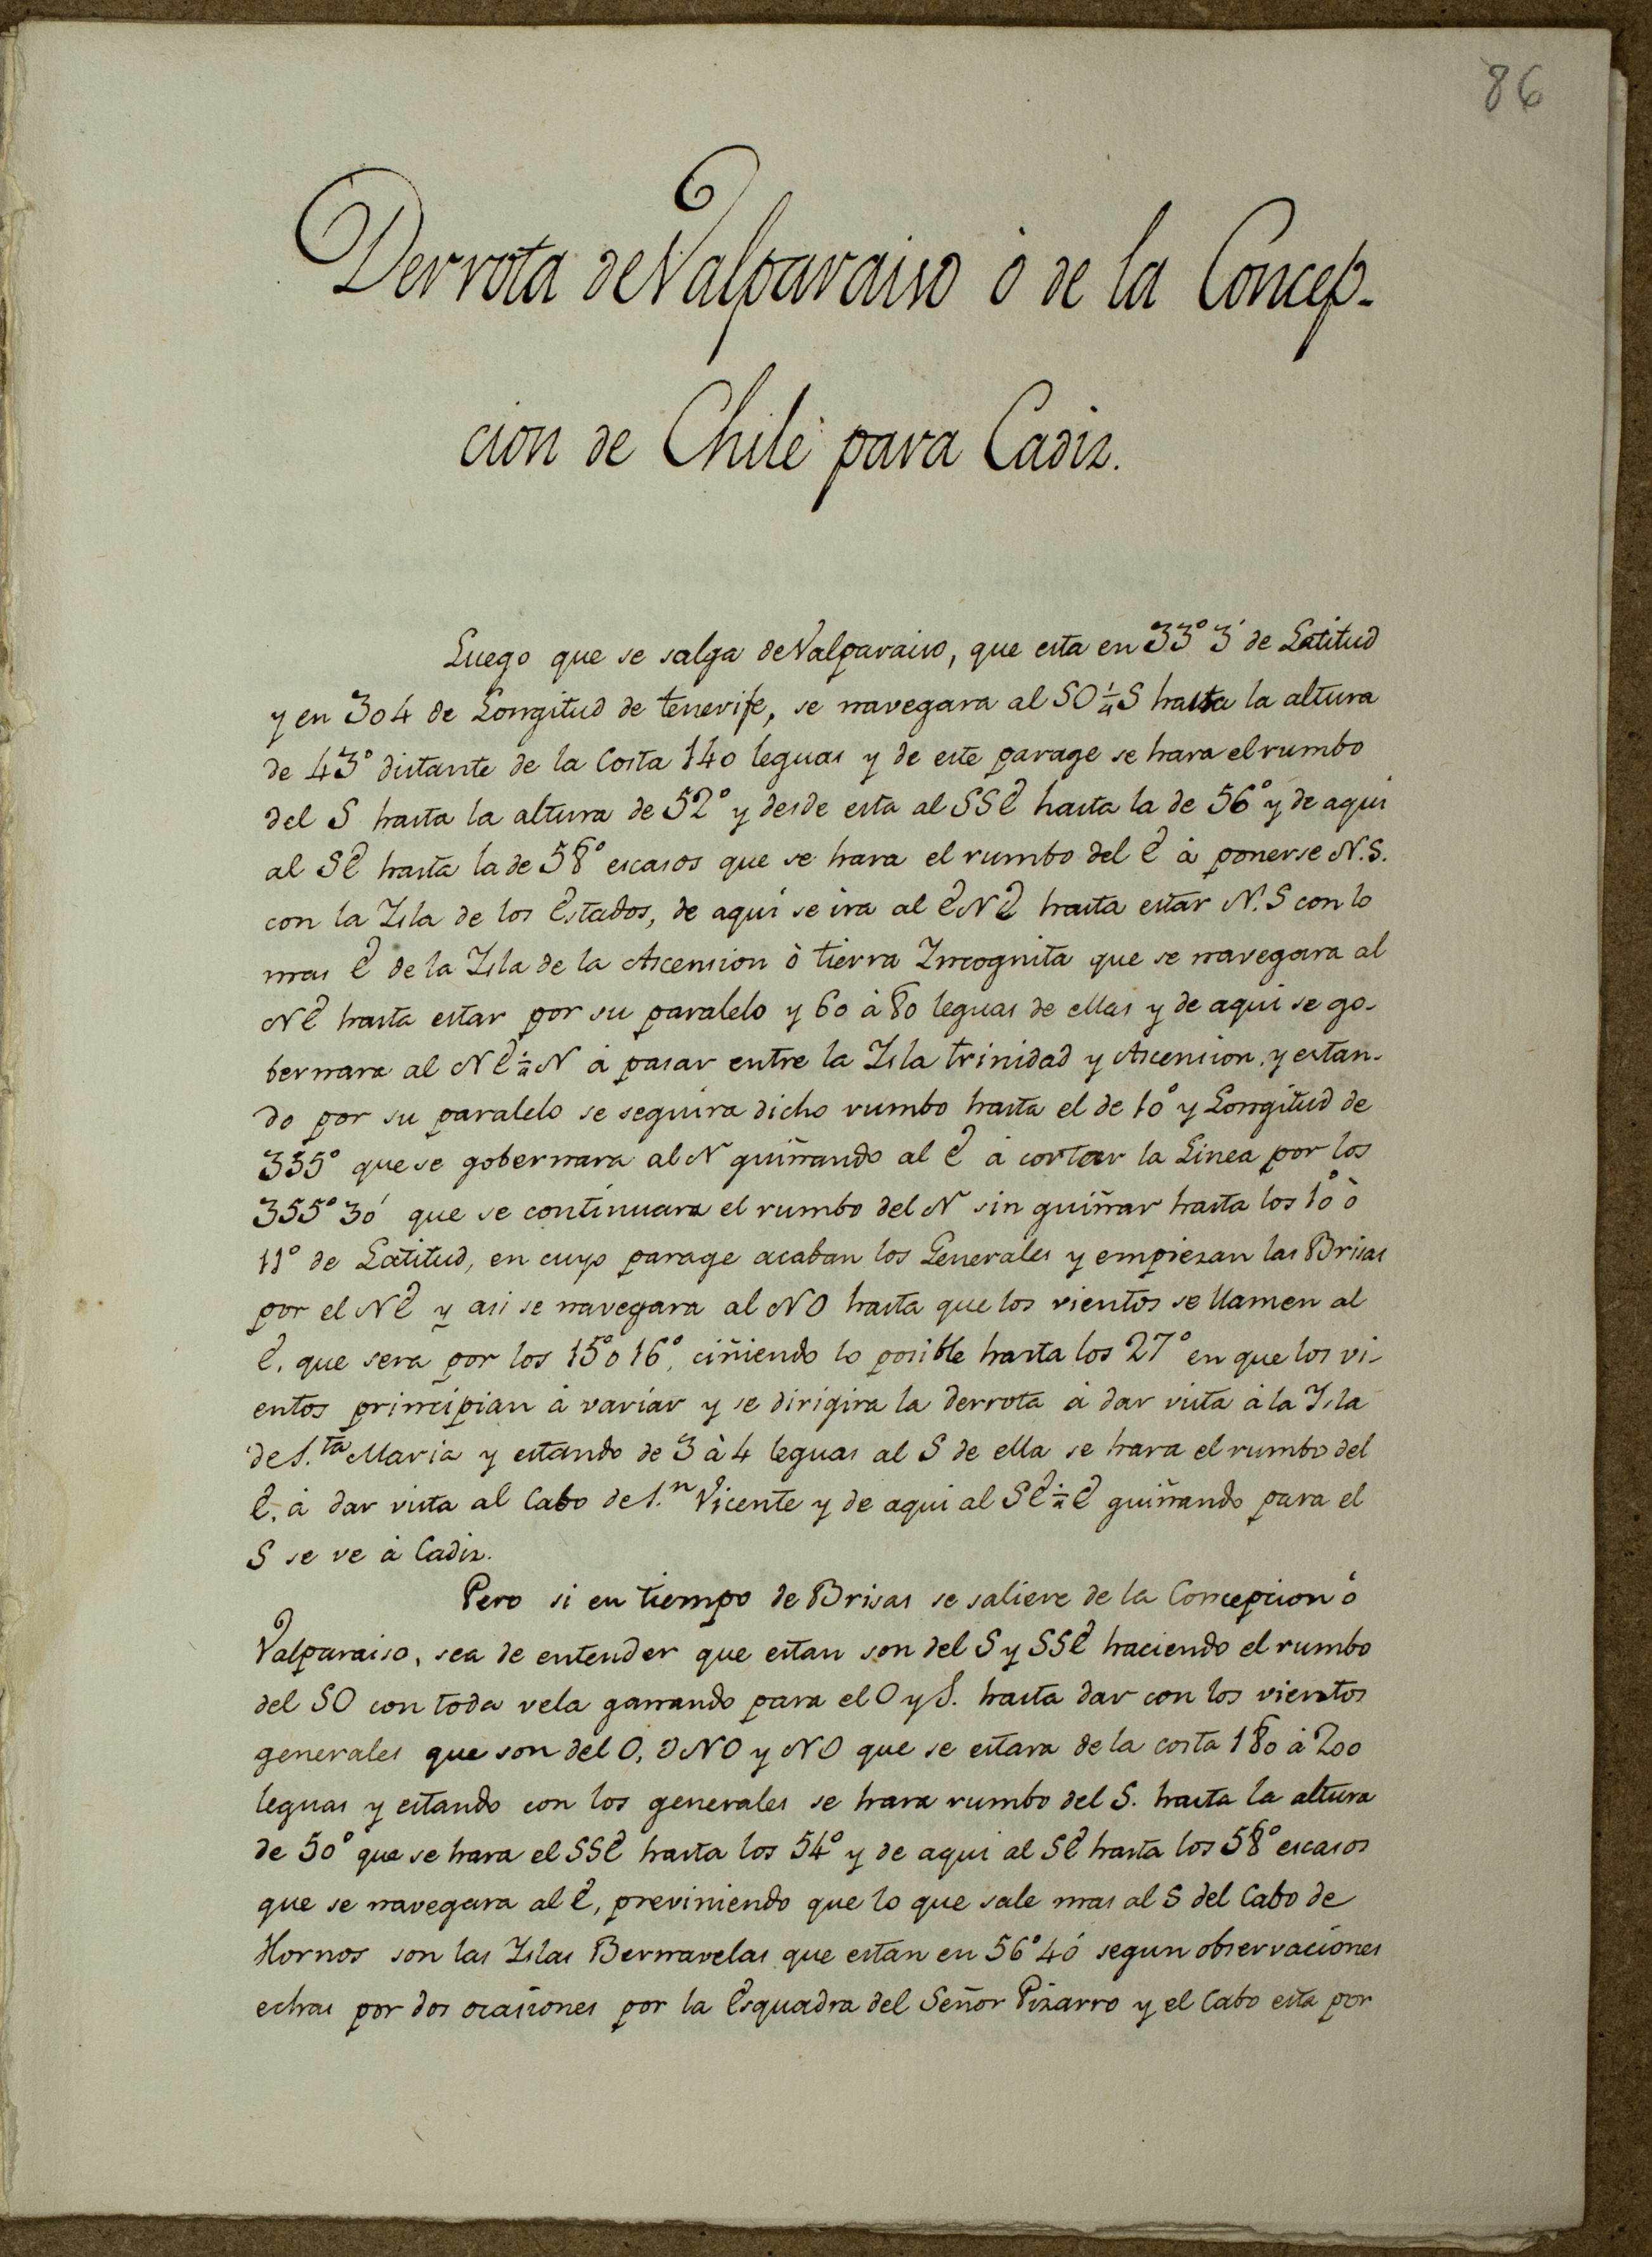 86
Derrota de Valparaiso ò de la Concep-
cion de Chile para Cadiz.
Luego que se salga de Valparaiso, que esta en 33° 3' de Latitud
y en 304 de Longitud de tenerife, se navegara al SO ¼ S hasta la altura
de 43° distante de la Costa 140 leguas y de este parage se hara el rumbo
del S hasta la altura de 52° y desde esta al SSE hasta la de 56° y de aqui
al SE hasta la de 58° escasos que se hara el rumbo del E à ponerse N.S.
con la Isla de los Estados, de aqui se ira al ENE hasta estar N.S con lo
mas E de la Isla de la Ascension ò tierra Incognita que se navegara al
NE hasta estar por su paralelo y 60 à 80 leguas de ellas y de aqui se go-
bernara al NE ¼ N à pasar entre la Isla trinidad y Ascension, y estan-
do por su paralelo se seguira dicho rumbo hasta el de 10° y Longitud de
355° que se gobernara al N guiñando al E à cortar la Linea por los
355° 30' que se continuara el rumbo del N sin guiñar hasta los 10° ò
11° de Latitud, en cuyo parage acaban los Generales y empiezan las Brisas
por el NE y asi se navegara al NO hasta que los vientos se llamen al
E, que sera por los 15° ò 16°, ciñiendo lo posible hasta los 27° en que los vi-
entos principian à variar y se dirigira la derrota à dar vista à la Isla
de S.ta Maria y estando de 3 à 4 leguas al S de ella se hara el rumbo del
E, à dar vista al Cabo de S.n Vicente y de aqui al SE ¼ E guiñando para el
S se ve à Cadiz.
Pero si en tiempo de Brisas se saliere de la Concepcion ò
Valparaiso, sea de entender que estan son del S y SSE haciendo el rumbo
del SO con toda vela ganando para el O y S. hasta dar con los vientos
generales que son del O, ONO y NO que se estara de la costa 180 à 200
leguas y estando con los generales se hara rumbo del S. hasta la altura
de 50° que se hara el SSE hasta los 54° y de aqui al SE hasta los 58° escasos
que se navegara al E, previniendo que lo que sale mas al S del Cabo de
Hornos son las Islas Bernavelas que estan en 56° 40' segun observaciones
echas por dos ocasiones por la Esquadra del Señor Pizarro y el Cabo esta por